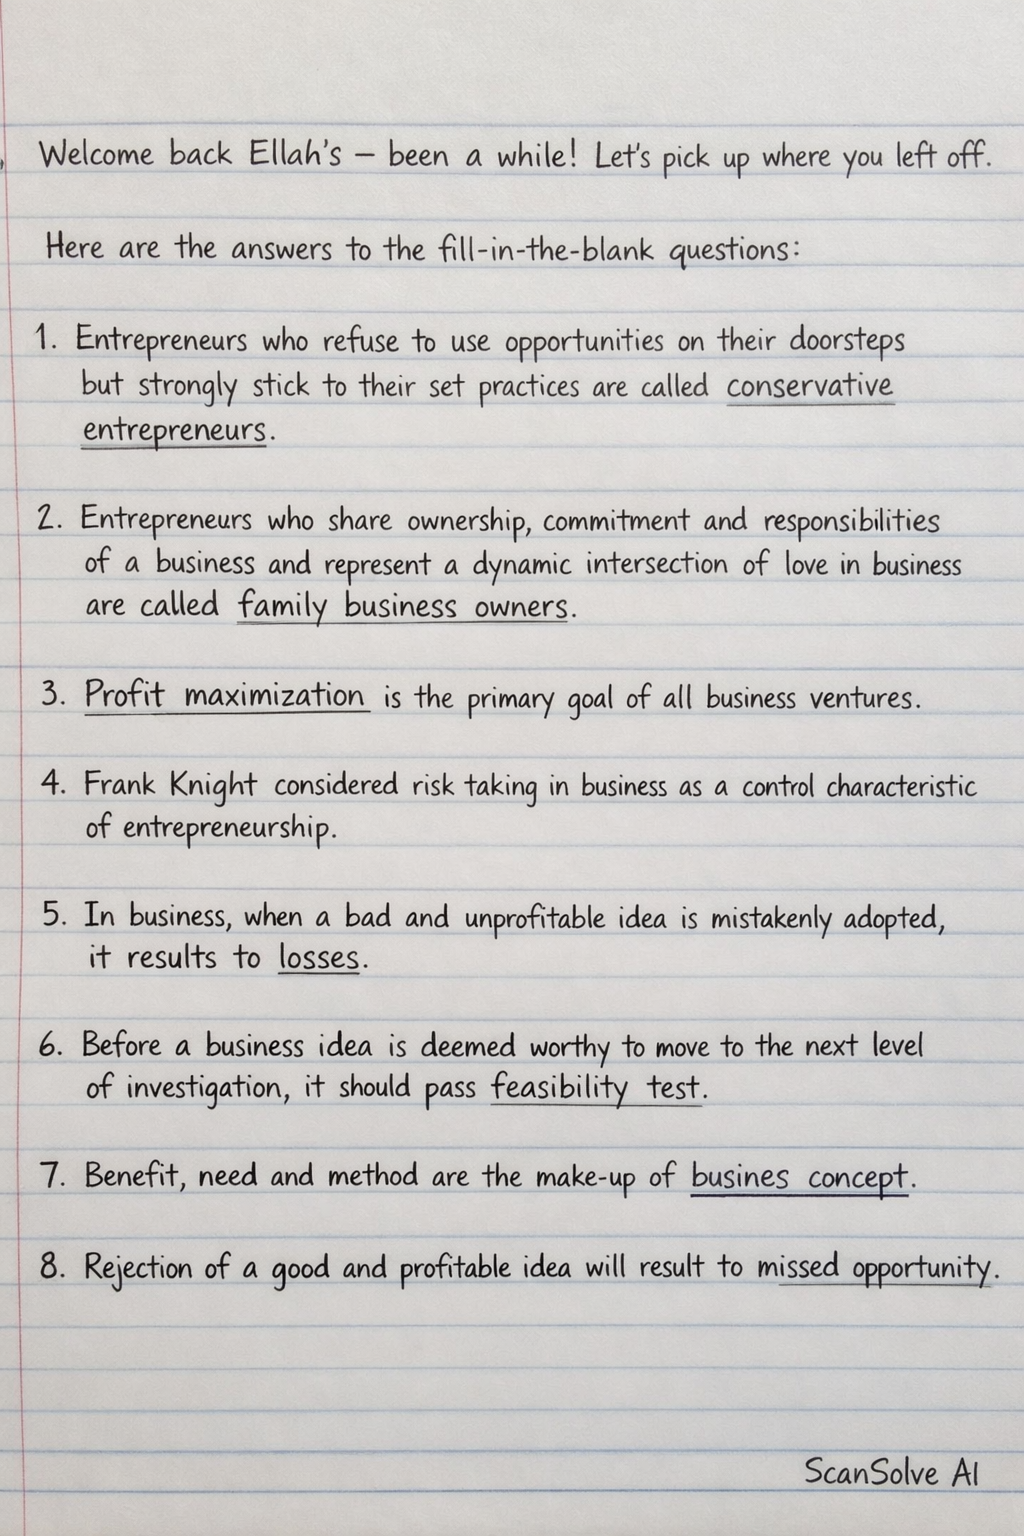 Welcome back Ellah's – been a while! Let's pick up where you left off.
Here are the answers to the fill-in-the-blank questions:
1. Entrepreneurs who refuse to use opportunities on their doorsteps
but strongly stick to their set practices are called conservative
entrepreneurs.
2. Entrepreneurs who share ownership, commitment and responsibilities
of a business and represent a dynamic intersection of love in business
are called family business owners.
3. Profit maximization is the primary goal of all business ventures.
4. Frank Knight considered risk taking in business as a control characteristic
of entrepreneurship.
5. In business, when a bad and unprofitable idea is mistakenly adopted,
it results to losses.
6. Before a business idea is deemed worthy to move to the next level
of investigation, it should pass feasibility test.
7. Benefit, need and method are the make-up of busines concept.
8. Rejection of a good and profitable idea will result to missed opportunity.
ScanSolve AI